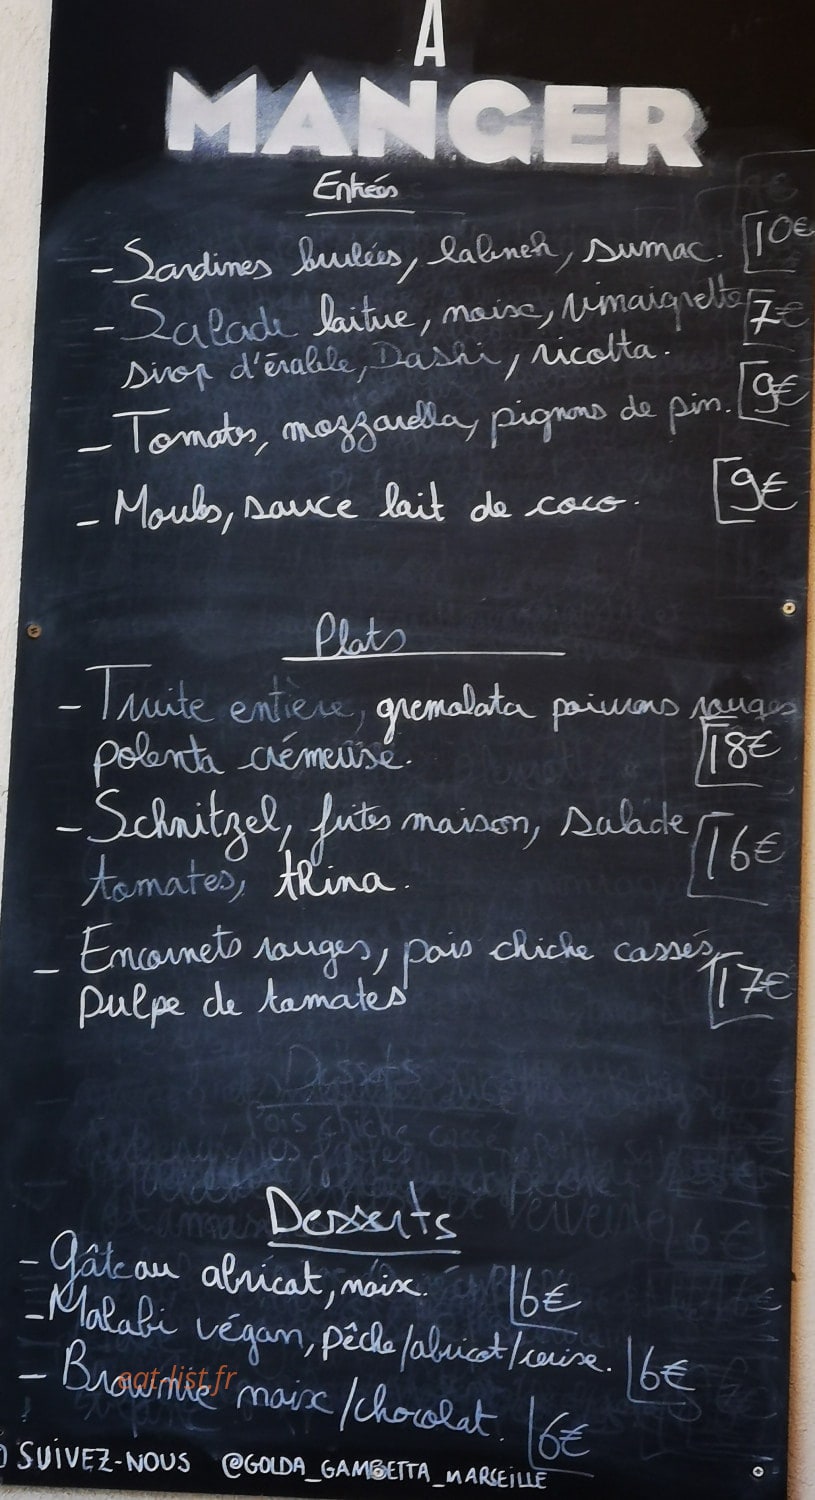 À
MANGER
Entrées
- Sardines brulées, labneh, sumac. 10€
- Salade laitue, noix, vinaigrette 7€
sirop d'érable, Dashi, ricotta.
- Tomates, mozzarella, pignons de pin. 9€
- Moules, sauce lait de coco. 9€
Plats
- Truite entière, gremolata poivrons rouges
polenta crémeuse. 18€
- Schnitzel, frites maison, salade 16€
tomates, thina.
- Encornets rouges, pois chiche cassés,
pulpe de tomates 17€
Desserts
- Gâteau abricat, noix. 6€
- Malabi végan, pêche/abricot/cerise. 6€
- Brownie noix/chocolat. 6€
eat-list.fr
SUIVEZ-NOUS @GOLDA_GAMBETTA_MARSEILLE